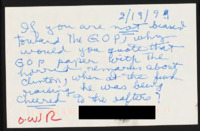 2/19/98
If you are not biased
toward the GOP, why
would you quote that
GOP paper with the
horrid remarks about
Clinton when at the fund
raising he was being
cheered to the rafters?
O.W.R